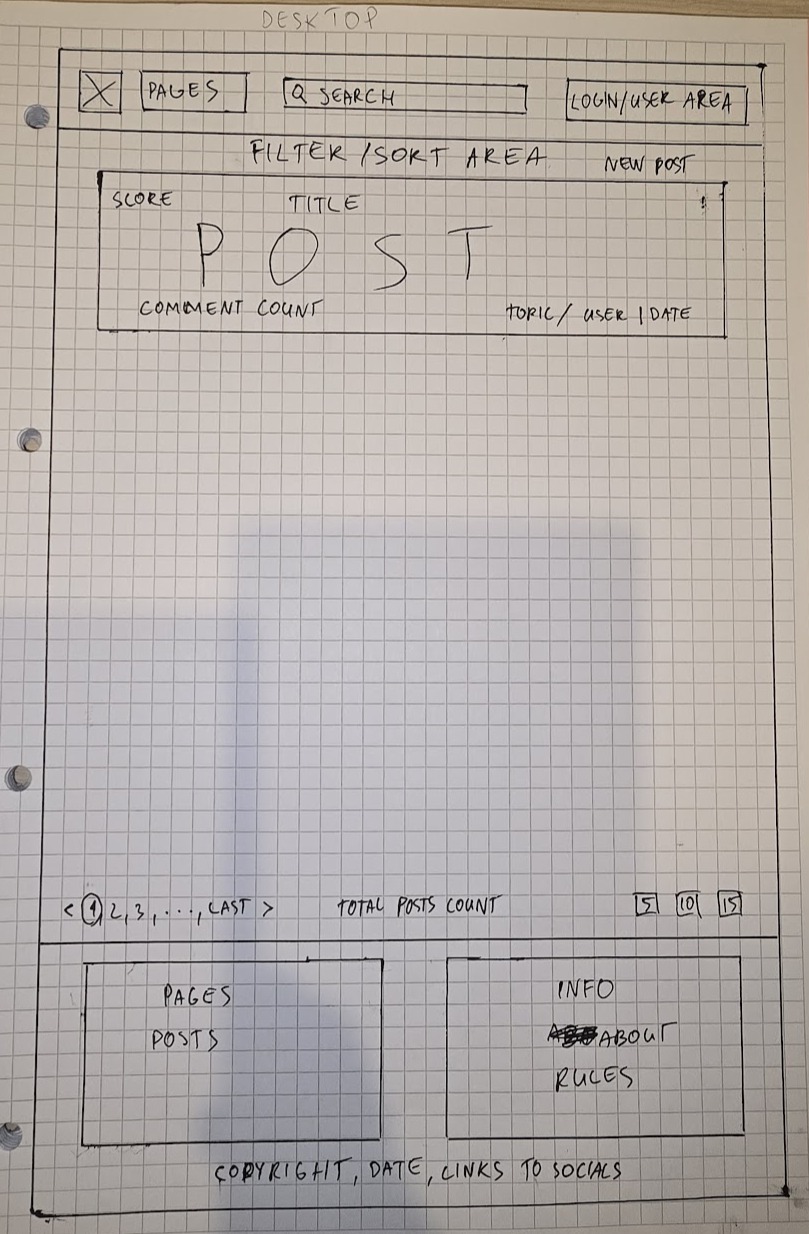 DESKTOP
PAGES
Q SEARCH
LOGIN/USER AREA
FILTER/SORT AREA
NEW POST
SCORE
TITLE
POST
COMMENT COUNT
TOPIC/USER|DATE
< 1, 2, 3, ..., LAST >
TOTAL POSTS COUNT
5
10
15
PAGES
POSTS
INFO
ABOUT
RULES
COPYRIGHT, DATE, LINKS TO SOCIALS